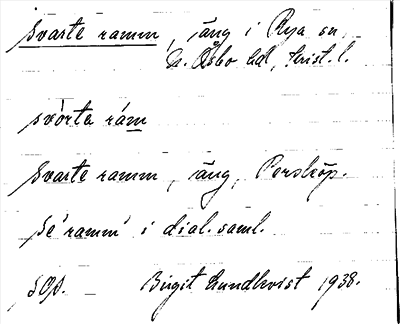 Svarte ramm, äng i Rya sn,
N. Åsbo hd, Krist. l.
svòrta rám
Svarte ramm, äng, Perstöp.
Se 'ramm' i dial. saml.
SOA. Birgit Lundkvist 1938.